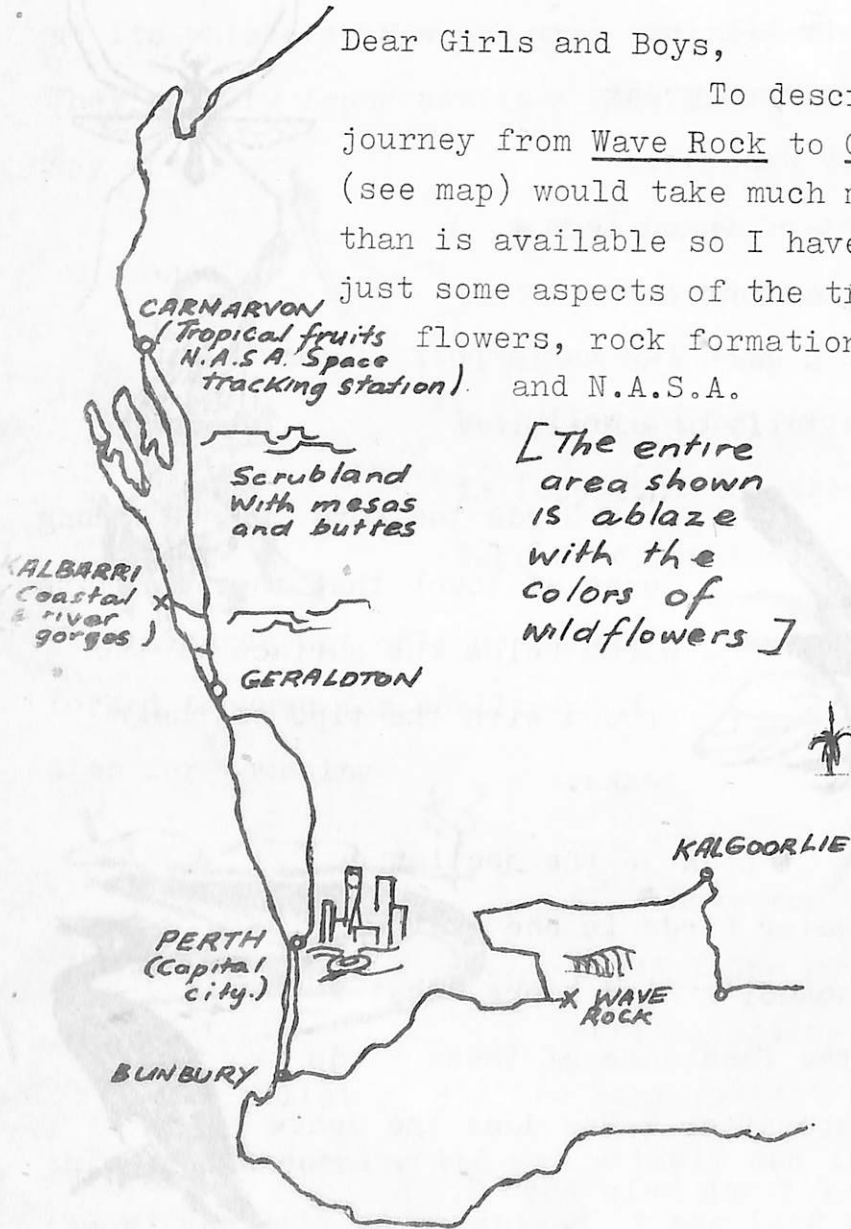 Dear Girls and Boys,
To descri
journey from Wave Rock to
(see map) would take much m
than is available so I have
just some aspects of the tr
flowers, rock formation
and N.A.S.A.
CARNARVON
(Tropical fruits
N.A.S.A. Space
tracking station)
[The entire
area shown
is ablaze
with the
colors of
wildflowers]
Scrubland
with mesas
and buttes
KALBARRI
(Coastal
& river
gorges)
GERALDTON
KALGOORLIE
PERTH
(Capital
city.)
WAVE
ROCK
BUNBURY